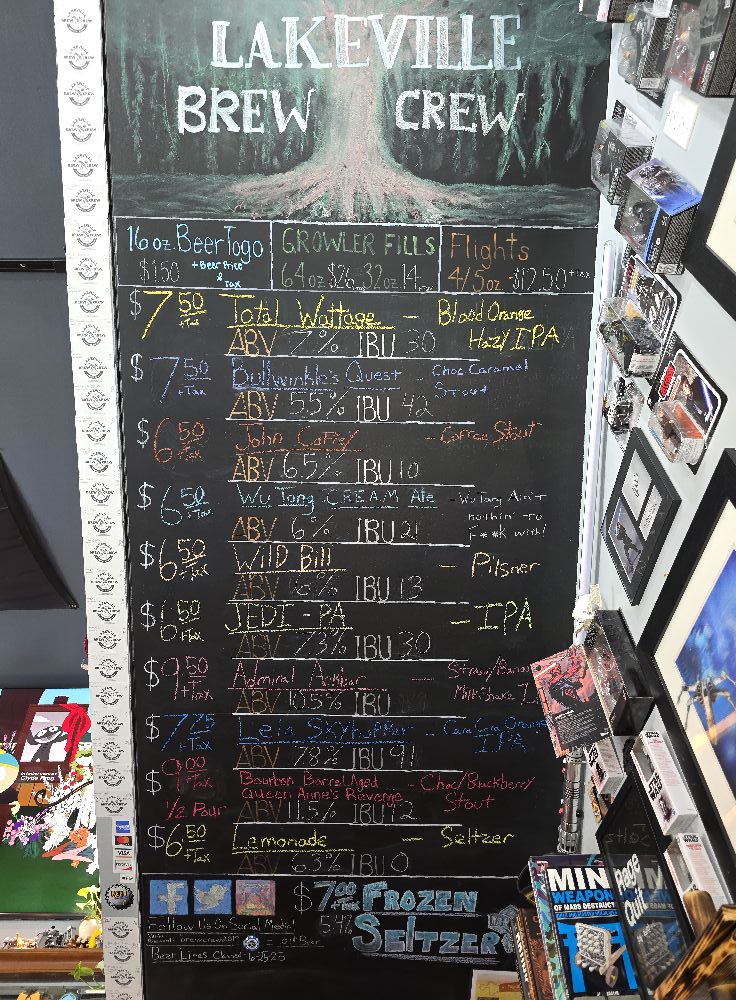 LAKEVILLE
BREW CREW
16 oz. Beer Togo
$1.50 + Beer Price
& Tax
GROWLER FILLS
64oz $26 32oz 14
Flights
4/5oz - $12.50 +tax
$7.50 +Tax Total Wattage — Blood Orange
Hazy IPA
ABV 7% IBU 30
$7.50 +Tax Bullwinkle's Quest - Choc Caramel
Stout
ABV 5.5% IBU 42
$6.50 +Tax John Coffey - Coffee Stout
ABV 6.5% IBU 10
$6.50 +Tax Wu Tang C.R.E.A.M Ale - Wu Tang Ain't
nothin' to
F**k with!
ABV 6% IBU 21
$6.50 +Tax Wild Bill — Pilsner
ABV 6% IBU 13
$6.50 +Tax JEDI-PA — IPA
ABV 7.3% IBU 30
$9.50 +Tax Admiral Ackbar —
Milk Shake
ABV 10.5% IBU
$7.25 +Tax Leia Skyhopper - Cara Cara Orange
IPA
ABV 7.8% IBU 91
$9.00 +Tax Bourbon Barrel Aged - Choc/Blackberry
1/2 Pour Queen Anne's Revenge Stout
ABV 11.5% IBU 42
$6.50 +Tax Lemonade — Seltzer
ABV 6.3% IBU 0
$7.00 +Tax FROZEN
5% SELTZER
Follow Us On Social Media!
Beer Lines Cleaned:
VISA
STAR WARS
STAR WARS
MINI
WEAPONS
OF MASS DESTRUCT